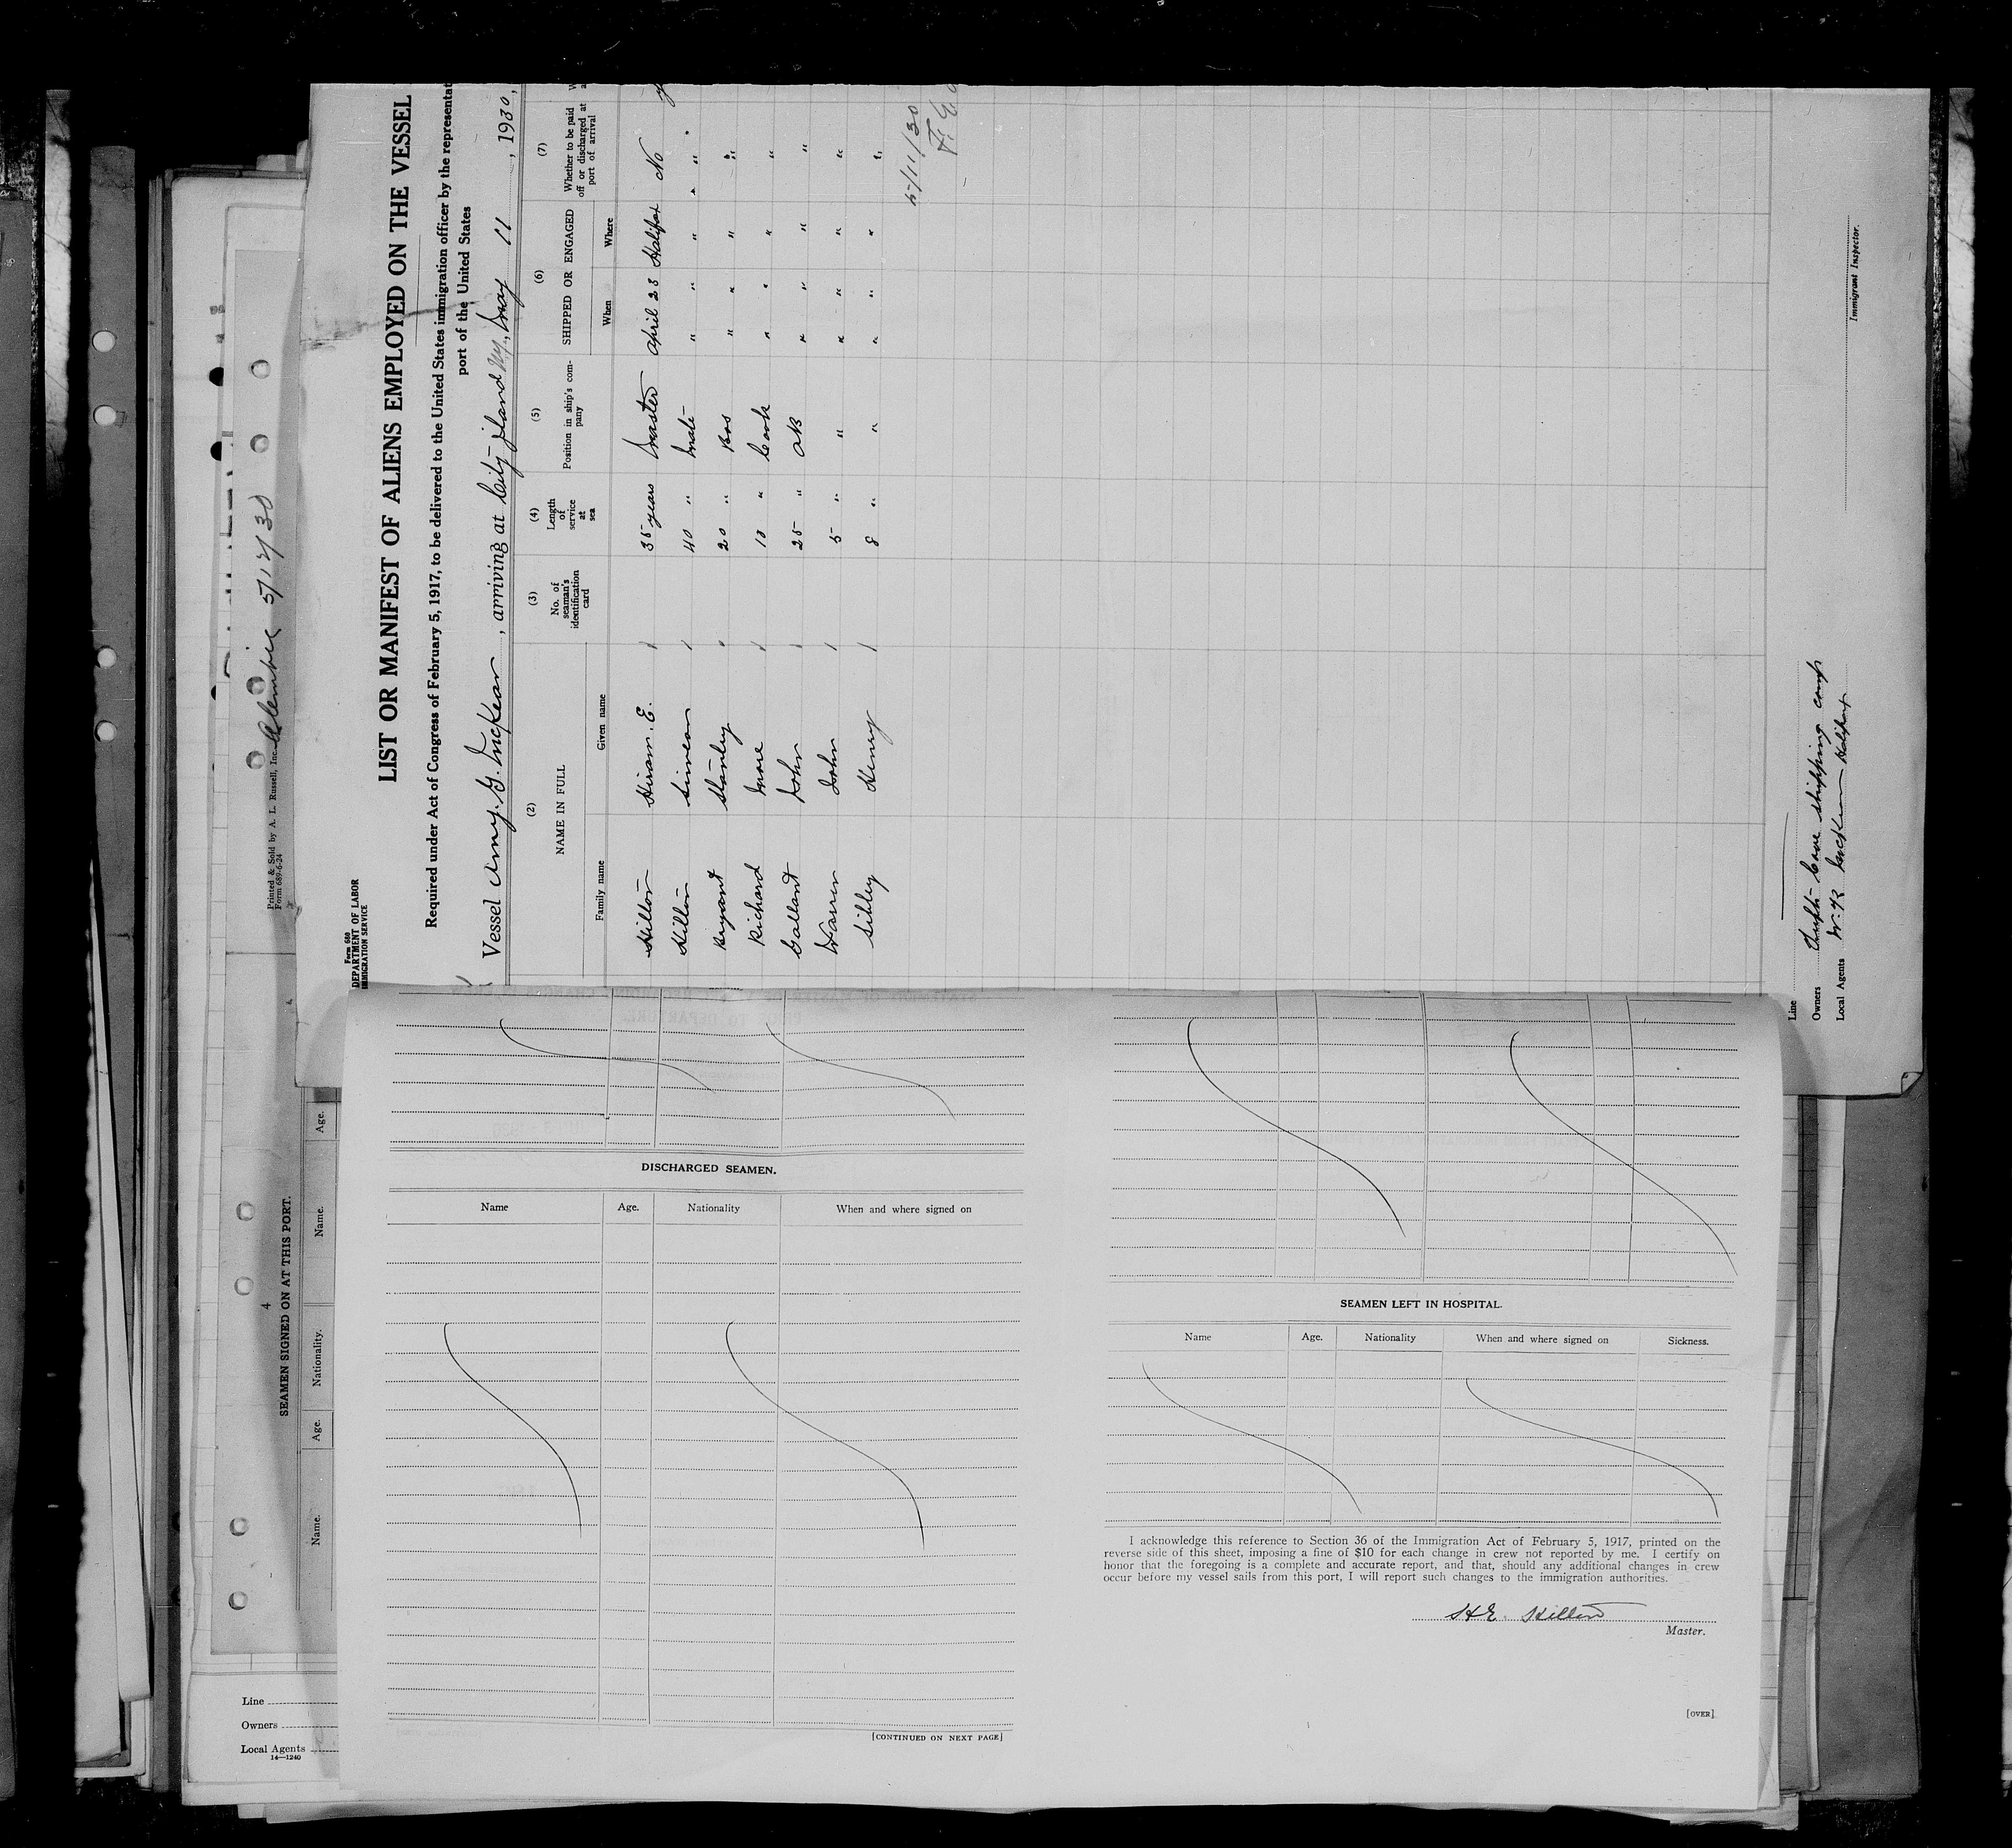 Form 680
DEPARTMENT OF LABOR
IMMIGRATION SERVICE
LIST OR MANIFEST OF ALIENS EMPLOYED ON THE VESSEL
Required under Act of Congress of February 5, 1917, to be delivered to the United States immigration officer by the representat
port of the United States
Vessel Amy. G. McKean, arriving at City Island N.Y., May 11, 1930,
(2) (3) (4) (5) (6) (7)
NAME IN FULL No. of seaman's identification card Length of service at sea Position in ship's company SHIPPED OR ENGAGED Whether to be paid off or discharged at port of arrival
Family name Given name When Where
Hilton Hiram. E. 35 years Master April 23 Halifax No
Hilton Simeon 40 " Mate " " " "
Bryant Stanley 20 " Bos " " " "
Richard More 10 " Cook " " " "
Gallant John 25 " AB " " " "
Warren John 5 " " " " " "
Sibley Henry 8 " " " " " "
5/11/30
Line
Owners Cove shipping comp
Local Agents McKean Halifax
Immigrant Inspector.
Printed & Sold by A. L. Russell, Inc.
Form 689-6-24
Alembic 5/12/30
4
SEAMEN SIGNED ON AT THIS PORT.
Name. Age. Nationality. Name. Age.
DISCHARGED SEAMEN.
Name Age. Nationality When and where signed on
[CONTINUED ON NEXT PAGE]
SEAMEN LEFT IN HOSPITAL.
Name Age. Nationality When and where signed on Sickness.
I acknowledge this reference to Section 36 of the Immigration Act of February 5, 1917, printed on the
reverse side of this sheet, imposing a fine of $10 for each change in crew not reported by me. I certify on
honor that the foregoing is a complete and accurate report, and that, should any additional changes in crew
occur before my vessel sails from this port, I will report such changes to the immigration authorities.
H.E. Hilton
Master.
[OVER]
Line
Owners
Local Agents
14—1240